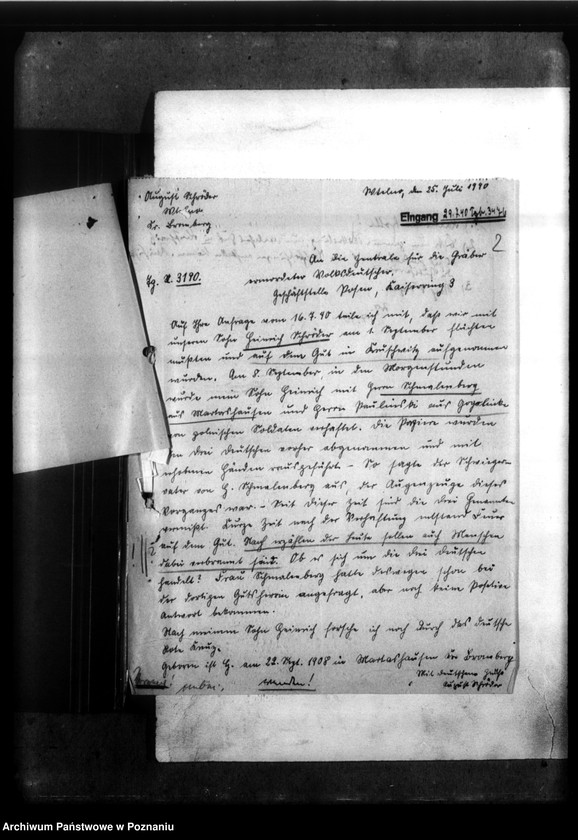 August Schröder
Wtelno
Kr. Bromberg
Wtelno, den 25. Juli 1940
Eingang 29.7.40
2
An die Zentrale für die Gräber
ermordeter Volksdeutscher,
Geschäftstelle Posen, Kaiserring 3
Hg. N. 3190.
Auf Ihre Anfrage vom 16.7.40 teile ich mit, daß wir mit
unserem Sohn Heinrich Schröder am 1. September flüchten
mußten und auf dem Gut in Kruschwitz aufgenommen
wurden. Am 8. September in den Morgenstunden
wurde mein Sohn Heinrich mit Herrn Schmalenberg
aus Martashausen und Herrn Paulinski aus
von polnischen Soldaten verhaftet. Die Papiere wurden
den drei Deutschen vorher abgenommen und mit
erhobenen Händen rausgeführt. - So sagte der Schwieger-
vater von H. Schmalenberg aus, der Augenzeuge dieses
Vorganges war. - Seit dieser Zeit sind die drei Genannten
vermißt. Kurze Zeit nach der Verhaftung entstand Feuer
auf dem Gut. Nach erzählen der Leute sollen auch Menschen
dabei verbrannt sein. Ob es sich um die drei Deutschen
handelt? Frau Schmalenberg hatte deswegen schon bei
der dortigen Gutsherrin angefragt, aber noch keine Positive
Antwort bekommen.
Nach meinem Sohn Heinrich forsche ich noch durch das Deutsche
Rote Kreuz.
Geboren ist H. am 22. Sept. 1908 in Martashausen Kr. Bromberg
Mit deutschem Gruß
August Schröder
wenden!
Archiwum Państwowe w Poznaniu